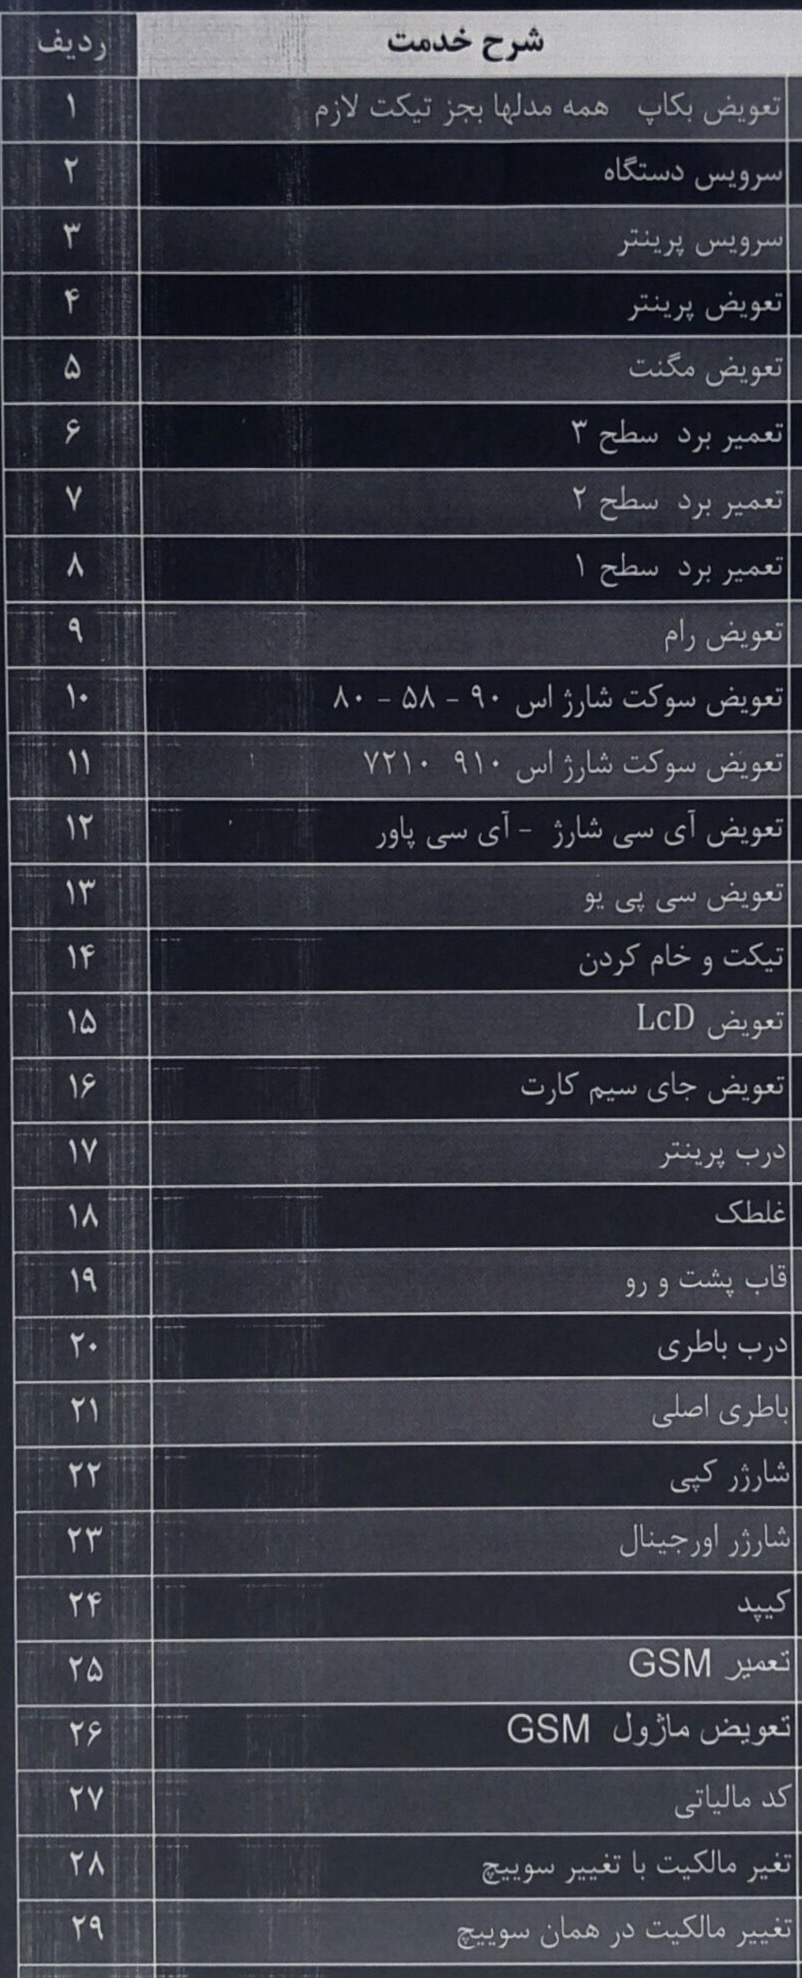 ردیف شرح خدمت
۱ تعویض بکاپ همه مدلها بجز تیکت لازم
۲ سرویس دستگاه
۳ سرویس پرینتر
۴ تعویض پرینتر
۵ تعویض مگنت
۶ تعمیر برد سطح ۳
۷ تعمیر برد سطح ۲
۸ تعمیر برد سطح ۱
۹ تعویض رام
۱۰ تعویض سوکت شارژ اس ۹۰ - ۵۸ - ۸۰
۱۱ تعویض سوکت شارژ اس ۹۱۰ ۷۲۱۰
۱۲ تعویض آی سی شارژ - آی سی پاور
۱۳ تعویض سی پی یو
۱۴ تیکت و خام کردن
۱۵ تعویض LcD
۱۶ تعویض جای سیم کارت
۱۷ درب پرینتر
۱۸ غلطک
۱۹ قاب پشت و رو
۲۰ درب باطری
۲۱ باطری اصلی
۲۲ شارژر کپی
۲۳ شارژر اورجینال
۲۴ کیپد
۲۵ تعمیر GSM
۲۶ تعویض ماژول GSM
۲۷ کد مالیاتی
۲۸ تغیر مالکیت با تغییر سوییچ
۲۹ تغییر مالکیت در همان سوییچ